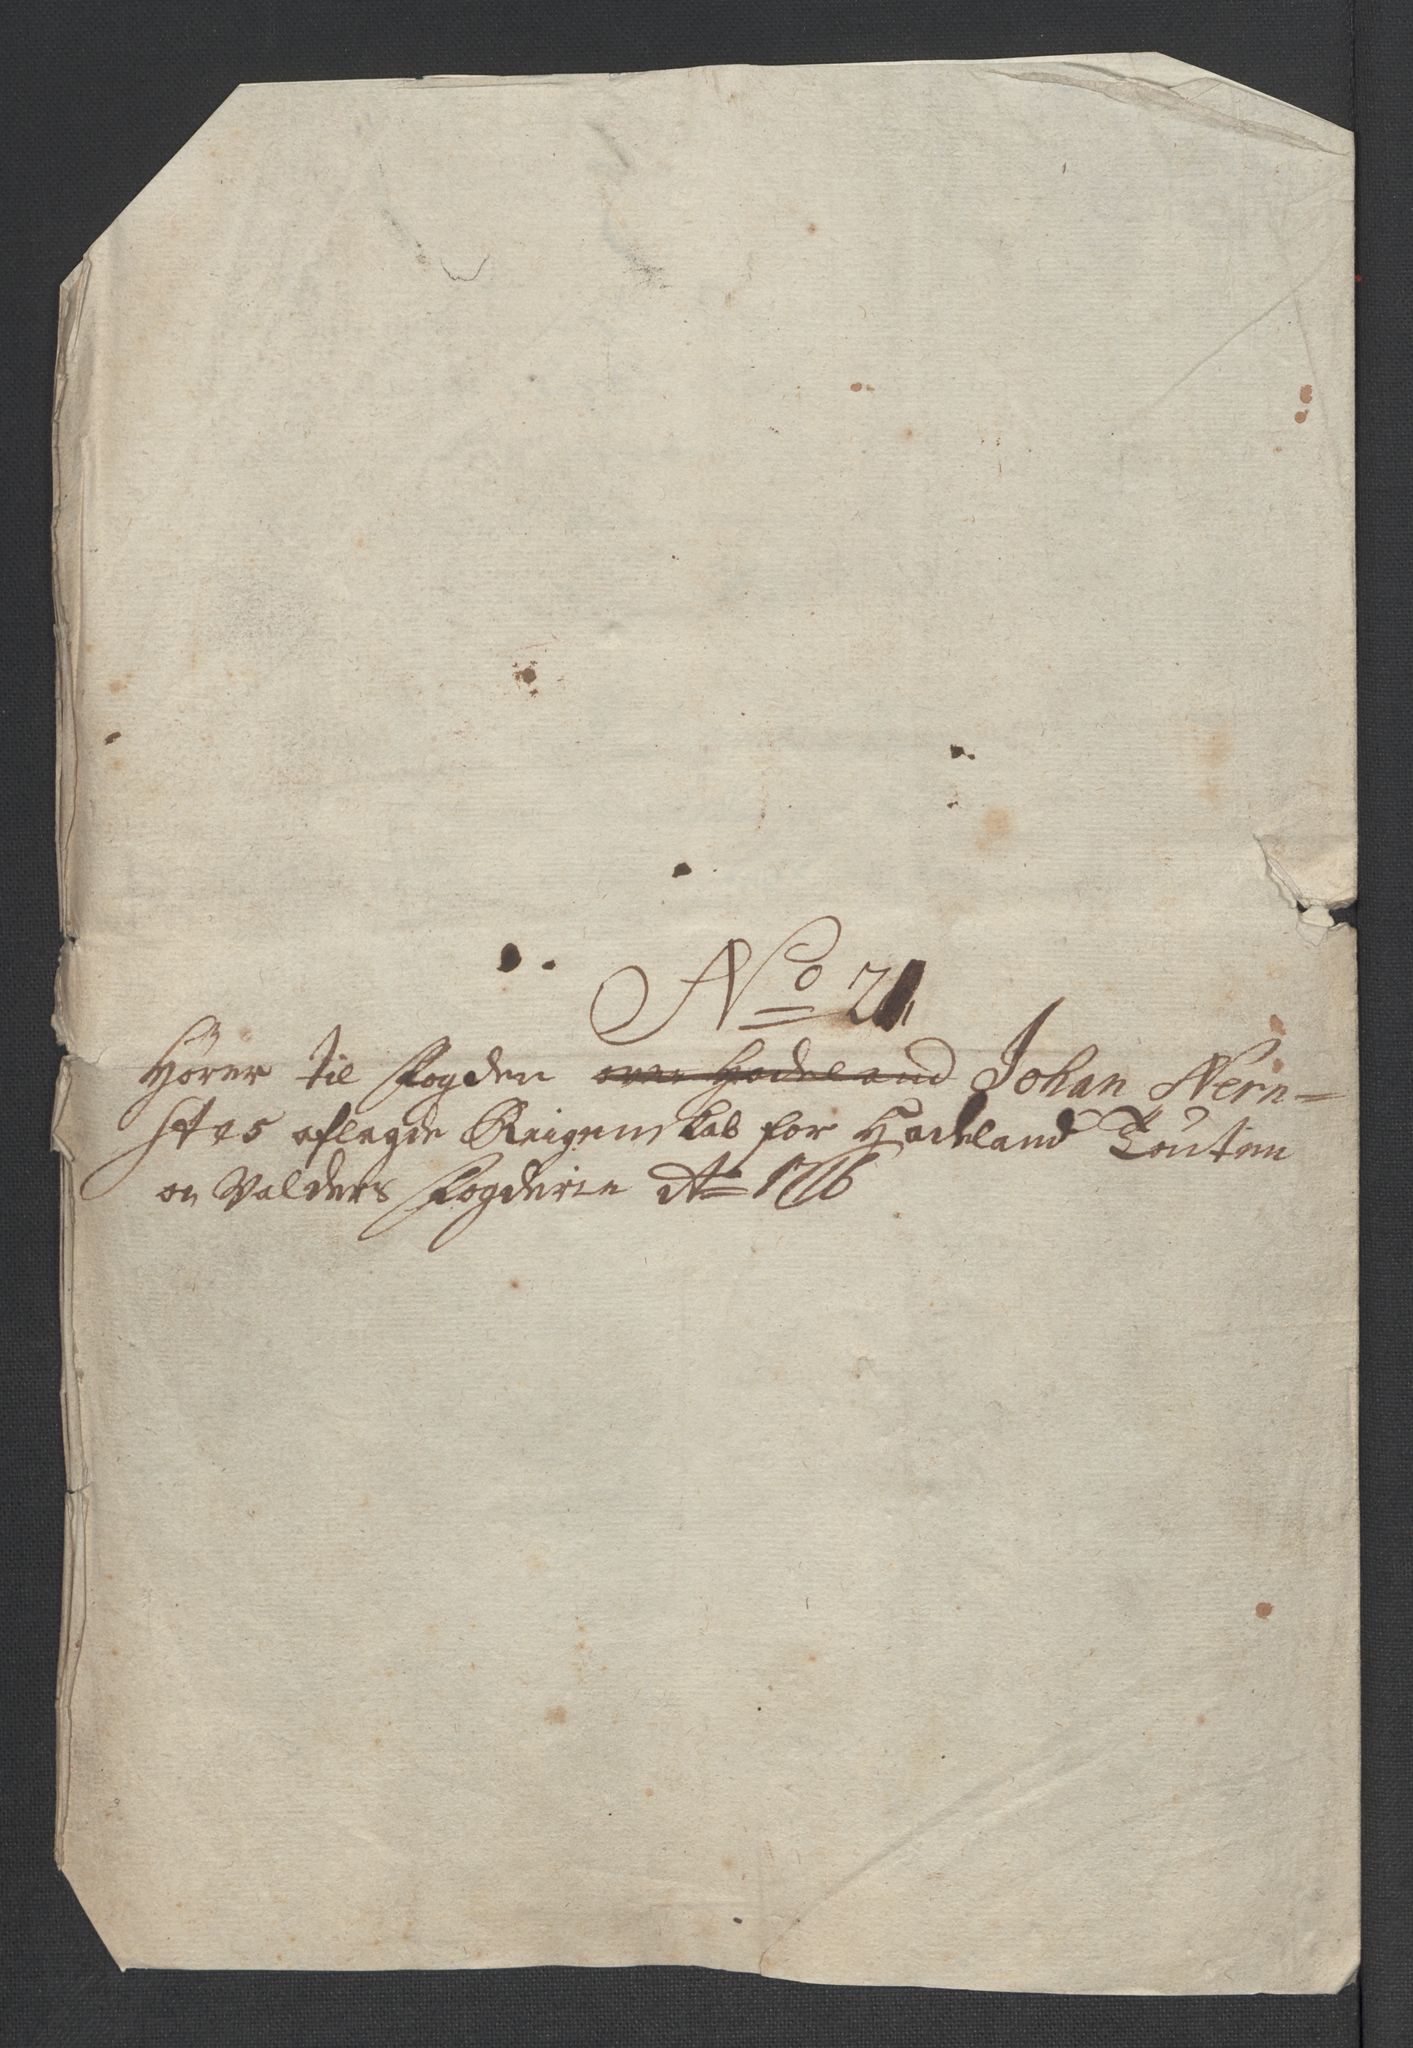 No 21
Hører til Fogden over Hadeland Johan Nern=
stes aflagde Reigenskab for Hadeland Touten
oc Valders Fogderie Ao 1716